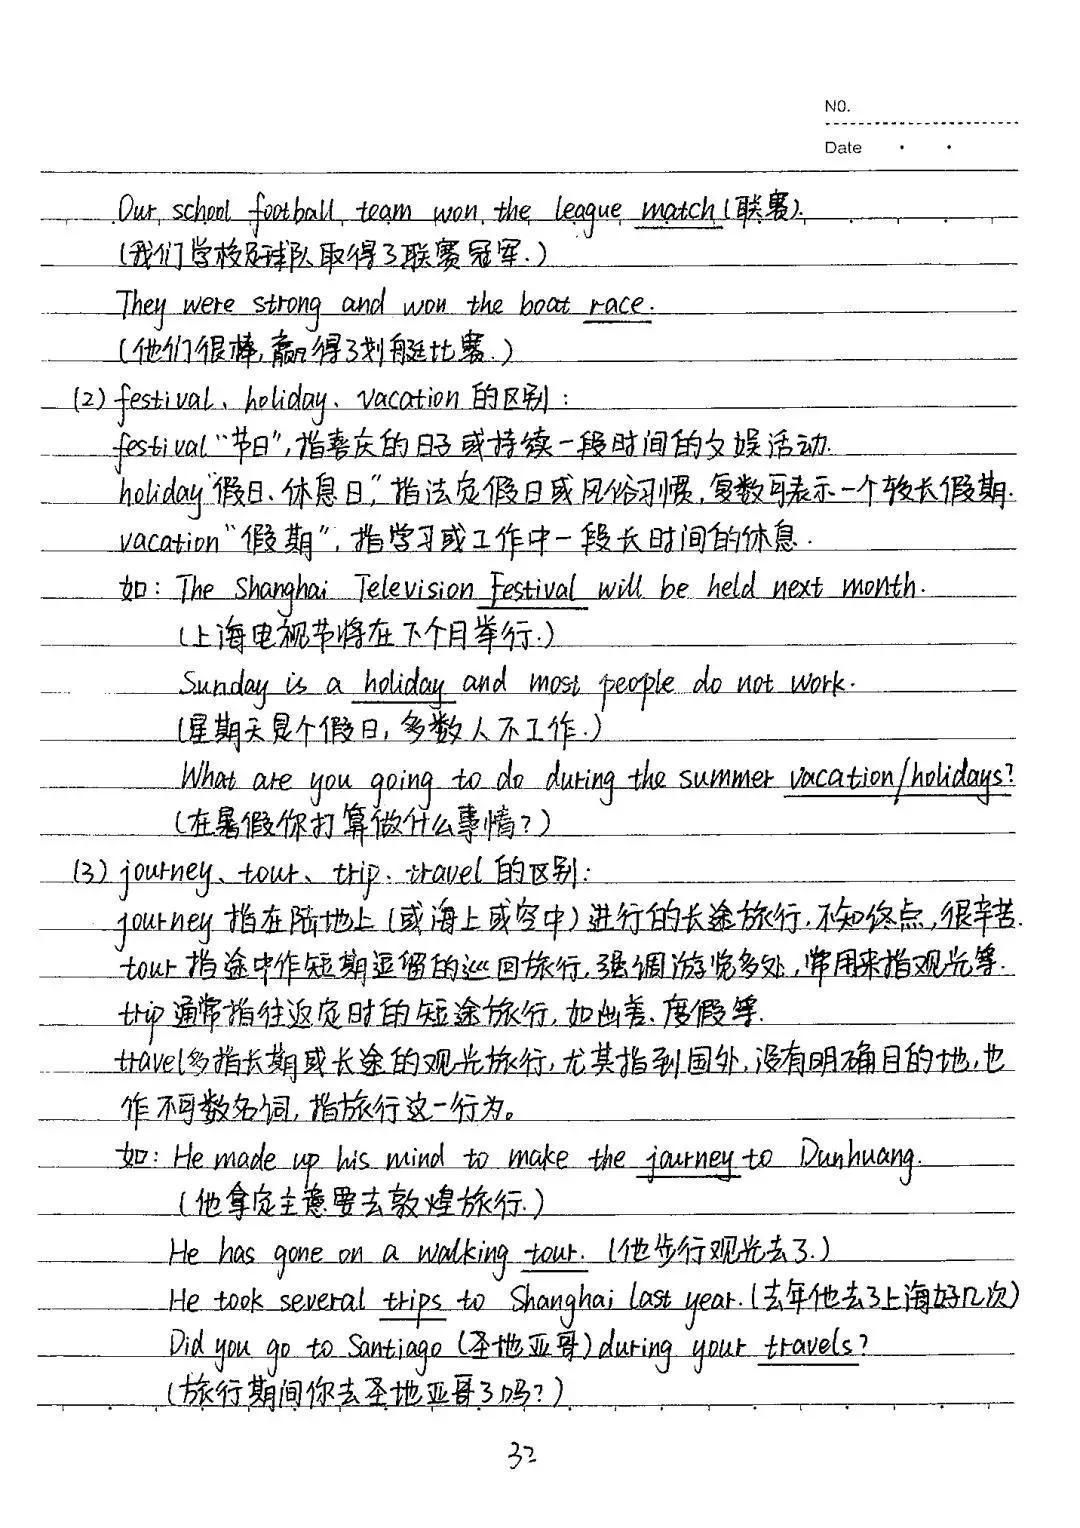 NO.
Date
Our school football team won the league match(联赛).
(我们学校足球队取得了联赛冠军.)
They were strong and won the boat race.
(他们很棒,赢得了划艇比赛.)
(2) festival、holiday、vacation的区别:
festival“节日”,指喜庆的日子或持续一段时间的文娱活动.
holiday“假日、休息日”,指法定假日或风俗习惯,复数可表示一个较长假期.
vacation“假期”,指学习或工作中一段长时间的休息.
如: The Shanghai Television Festival will be held next month.
(上海电视节将在下个月举行.)
Sunday is a holiday and most people do not work.
(星期天是个假日,多数人不工作.)
What are you going to do during the summer vacation/holidays?
(在暑假你打算做什么事情?)
(3) journey、tour、trip、travel的区别:
journey指在陆地上(或海上或空中)进行的长途旅行,不知终点,很辛苦.
tour指途中作短期逗留的巡回旅行,强调游览多处,常用来指观光等.
trip通常指往返定时的短途旅行,如出差、度假等.
travel多指长期或长途的观光旅行,尤其指到国外,没有明确目的地,也
作不可数名词,指旅行这一行为。
如: He made up his mind to make the journey to Dunhuang.
(他拿定主意要去敦煌旅行.)
He has gone on a walking tour. (他步行观光去了.)
He took several trips to Shanghai last year.(去年他去了上海好几次)
Did you go to Santiago (圣地亚哥)during your travels?
(旅行期间你去圣地亚哥了吗?)
32